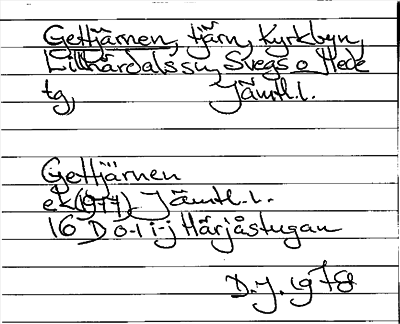 Gettjärnen, tjärn, Kyrkbyn,
Lillhärdals sn, Svegs o Hede
tg, Jämtl.l.
Gettjärnen
ek (1977) Jämtl.l.
16 D o-1 i-j Härjåstugan
D.J. 1978